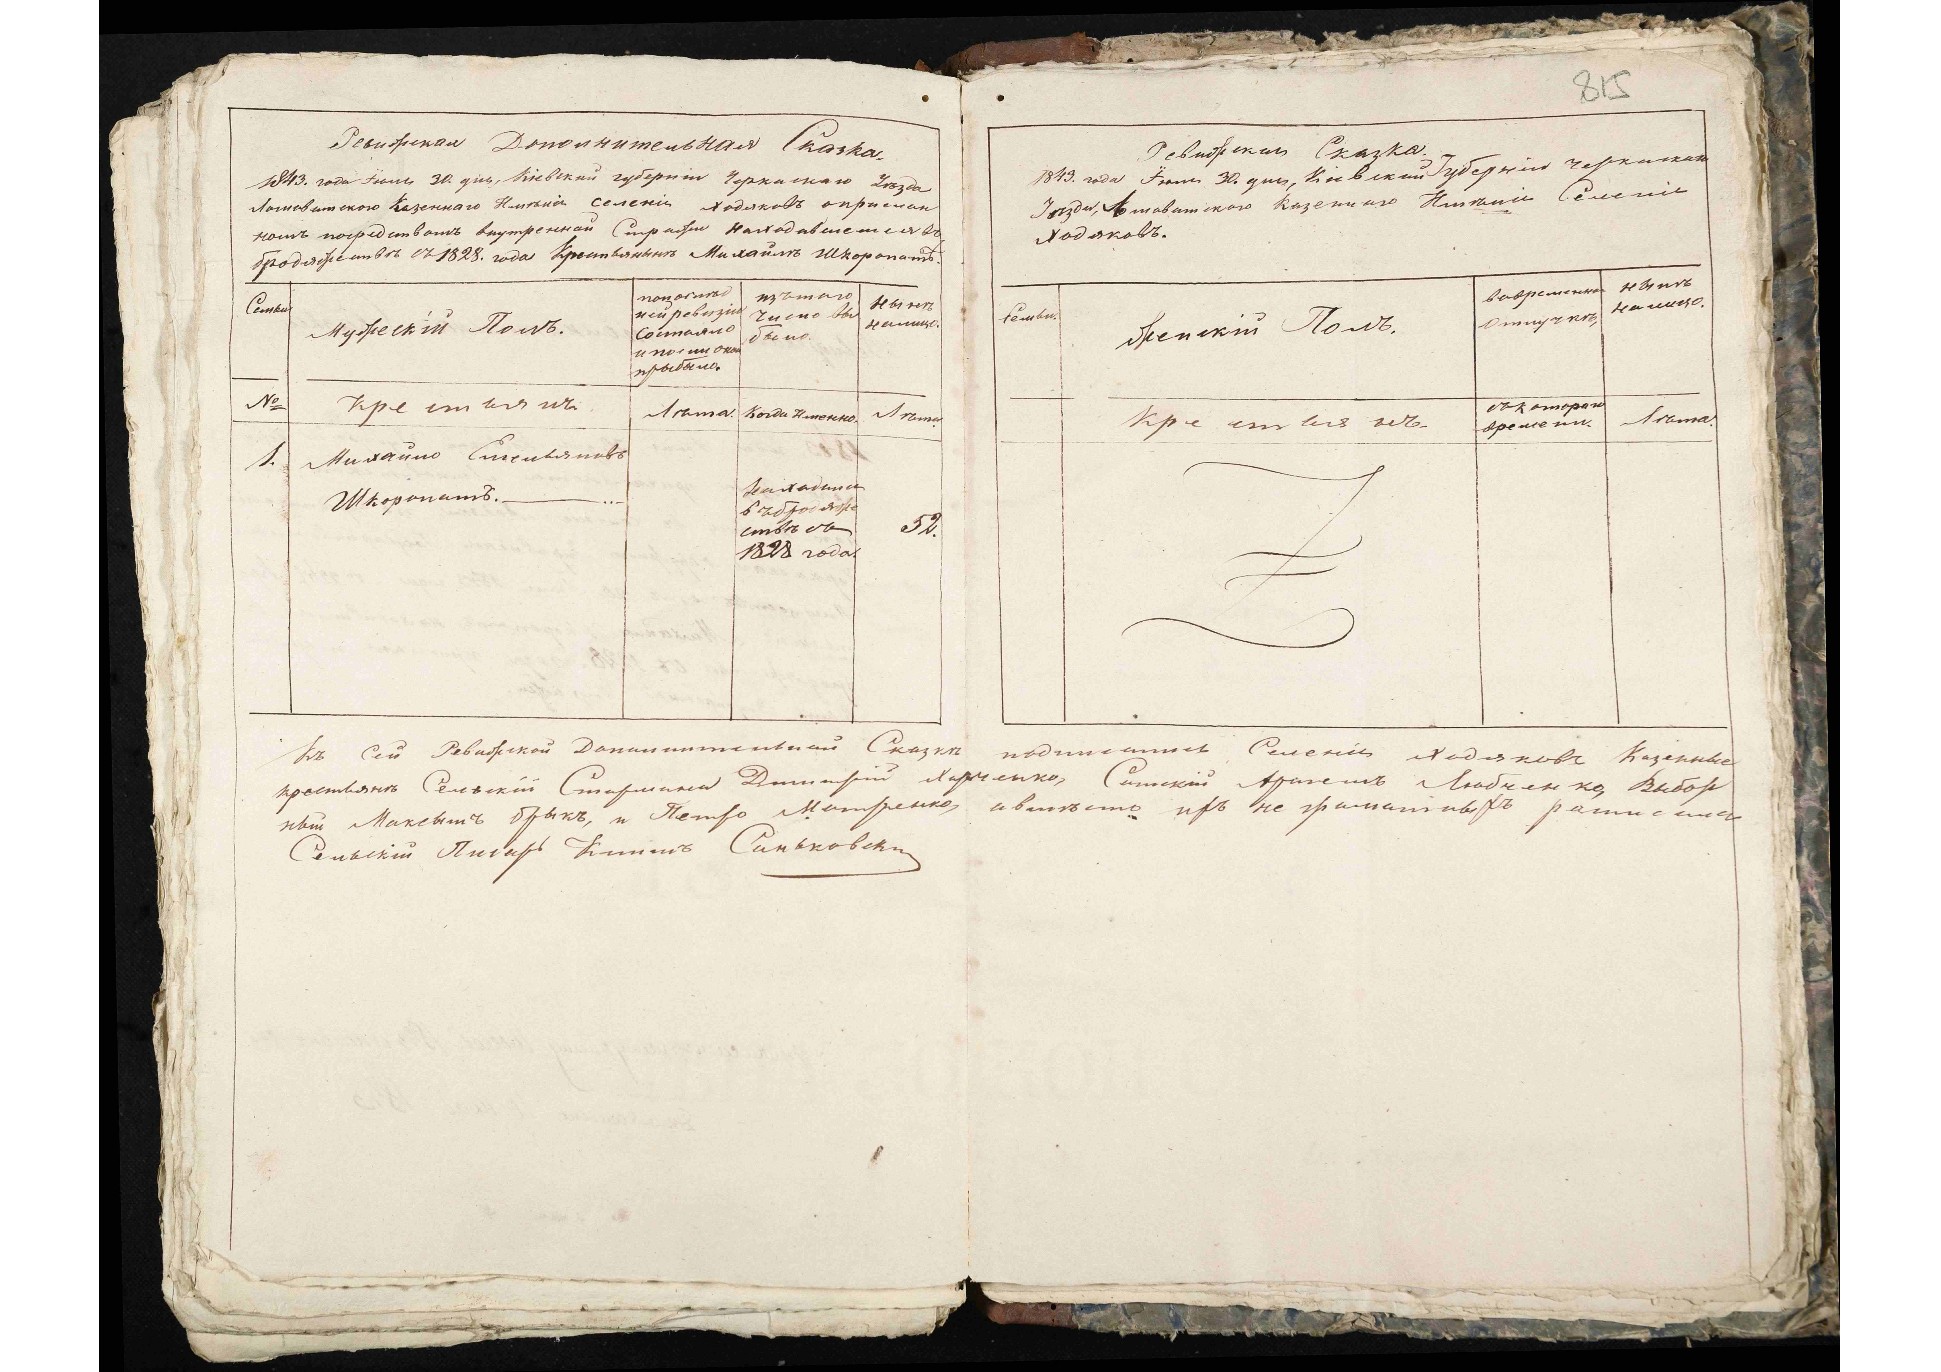 815
Ревижская Дополнительная Сказка.
1843. года Іюля 30. дня, Кіевской губерніи Черкаскаго Уѣзда
Ломоватского Казеннаго Имѣнія селенія Ходяковъ о прислан
номъ посредствомъ внутренной Стражи находившемся въ
бродяжествѣ съ 1828. года Крестьянинѣ Михайлѣ Шкоропатѣ.
Семьи
Мужескій Полъ.
по послѣд
ней ревизіи
состояло
и после оной
прыбыло.
изъ того
число вы
было.
нынѣ
налицо.
№
Крестьянъ
Лѣта.
Когда Именно.
Лѣта.
1.
Михайло Емельяновъ
Шкоропатъ.
Находился
въ бродяже
ствѣ съ
1828 года.
52.
Ревижская Сказка.
1843. года Іюля 30. дня, Кіевской Губерніи Черкаскаго
Уѣзда, Ломоватского Казенного Имѣнія Селенія
Ходяковъ.
Семьи.
Женскій Полъ.
во временной
отлучкѣ,
нынѣ
налицо.
Крестьянъ
съ которого
времени.
Лѣта.
Къ сей Ревижской Дополнительной Сказкѣ подписались Селенія Ходяковъ Казенные
крестьянѣ Сельскій Старшина Дмитрій Харченко, Сотскій Любченко, Выбор
ный Максымъ Брыкъ, и Петро Мотренко, а вмѣсто ихъ не грамотныхъ росписался
Сельскій Писарь Климъ Саньковски